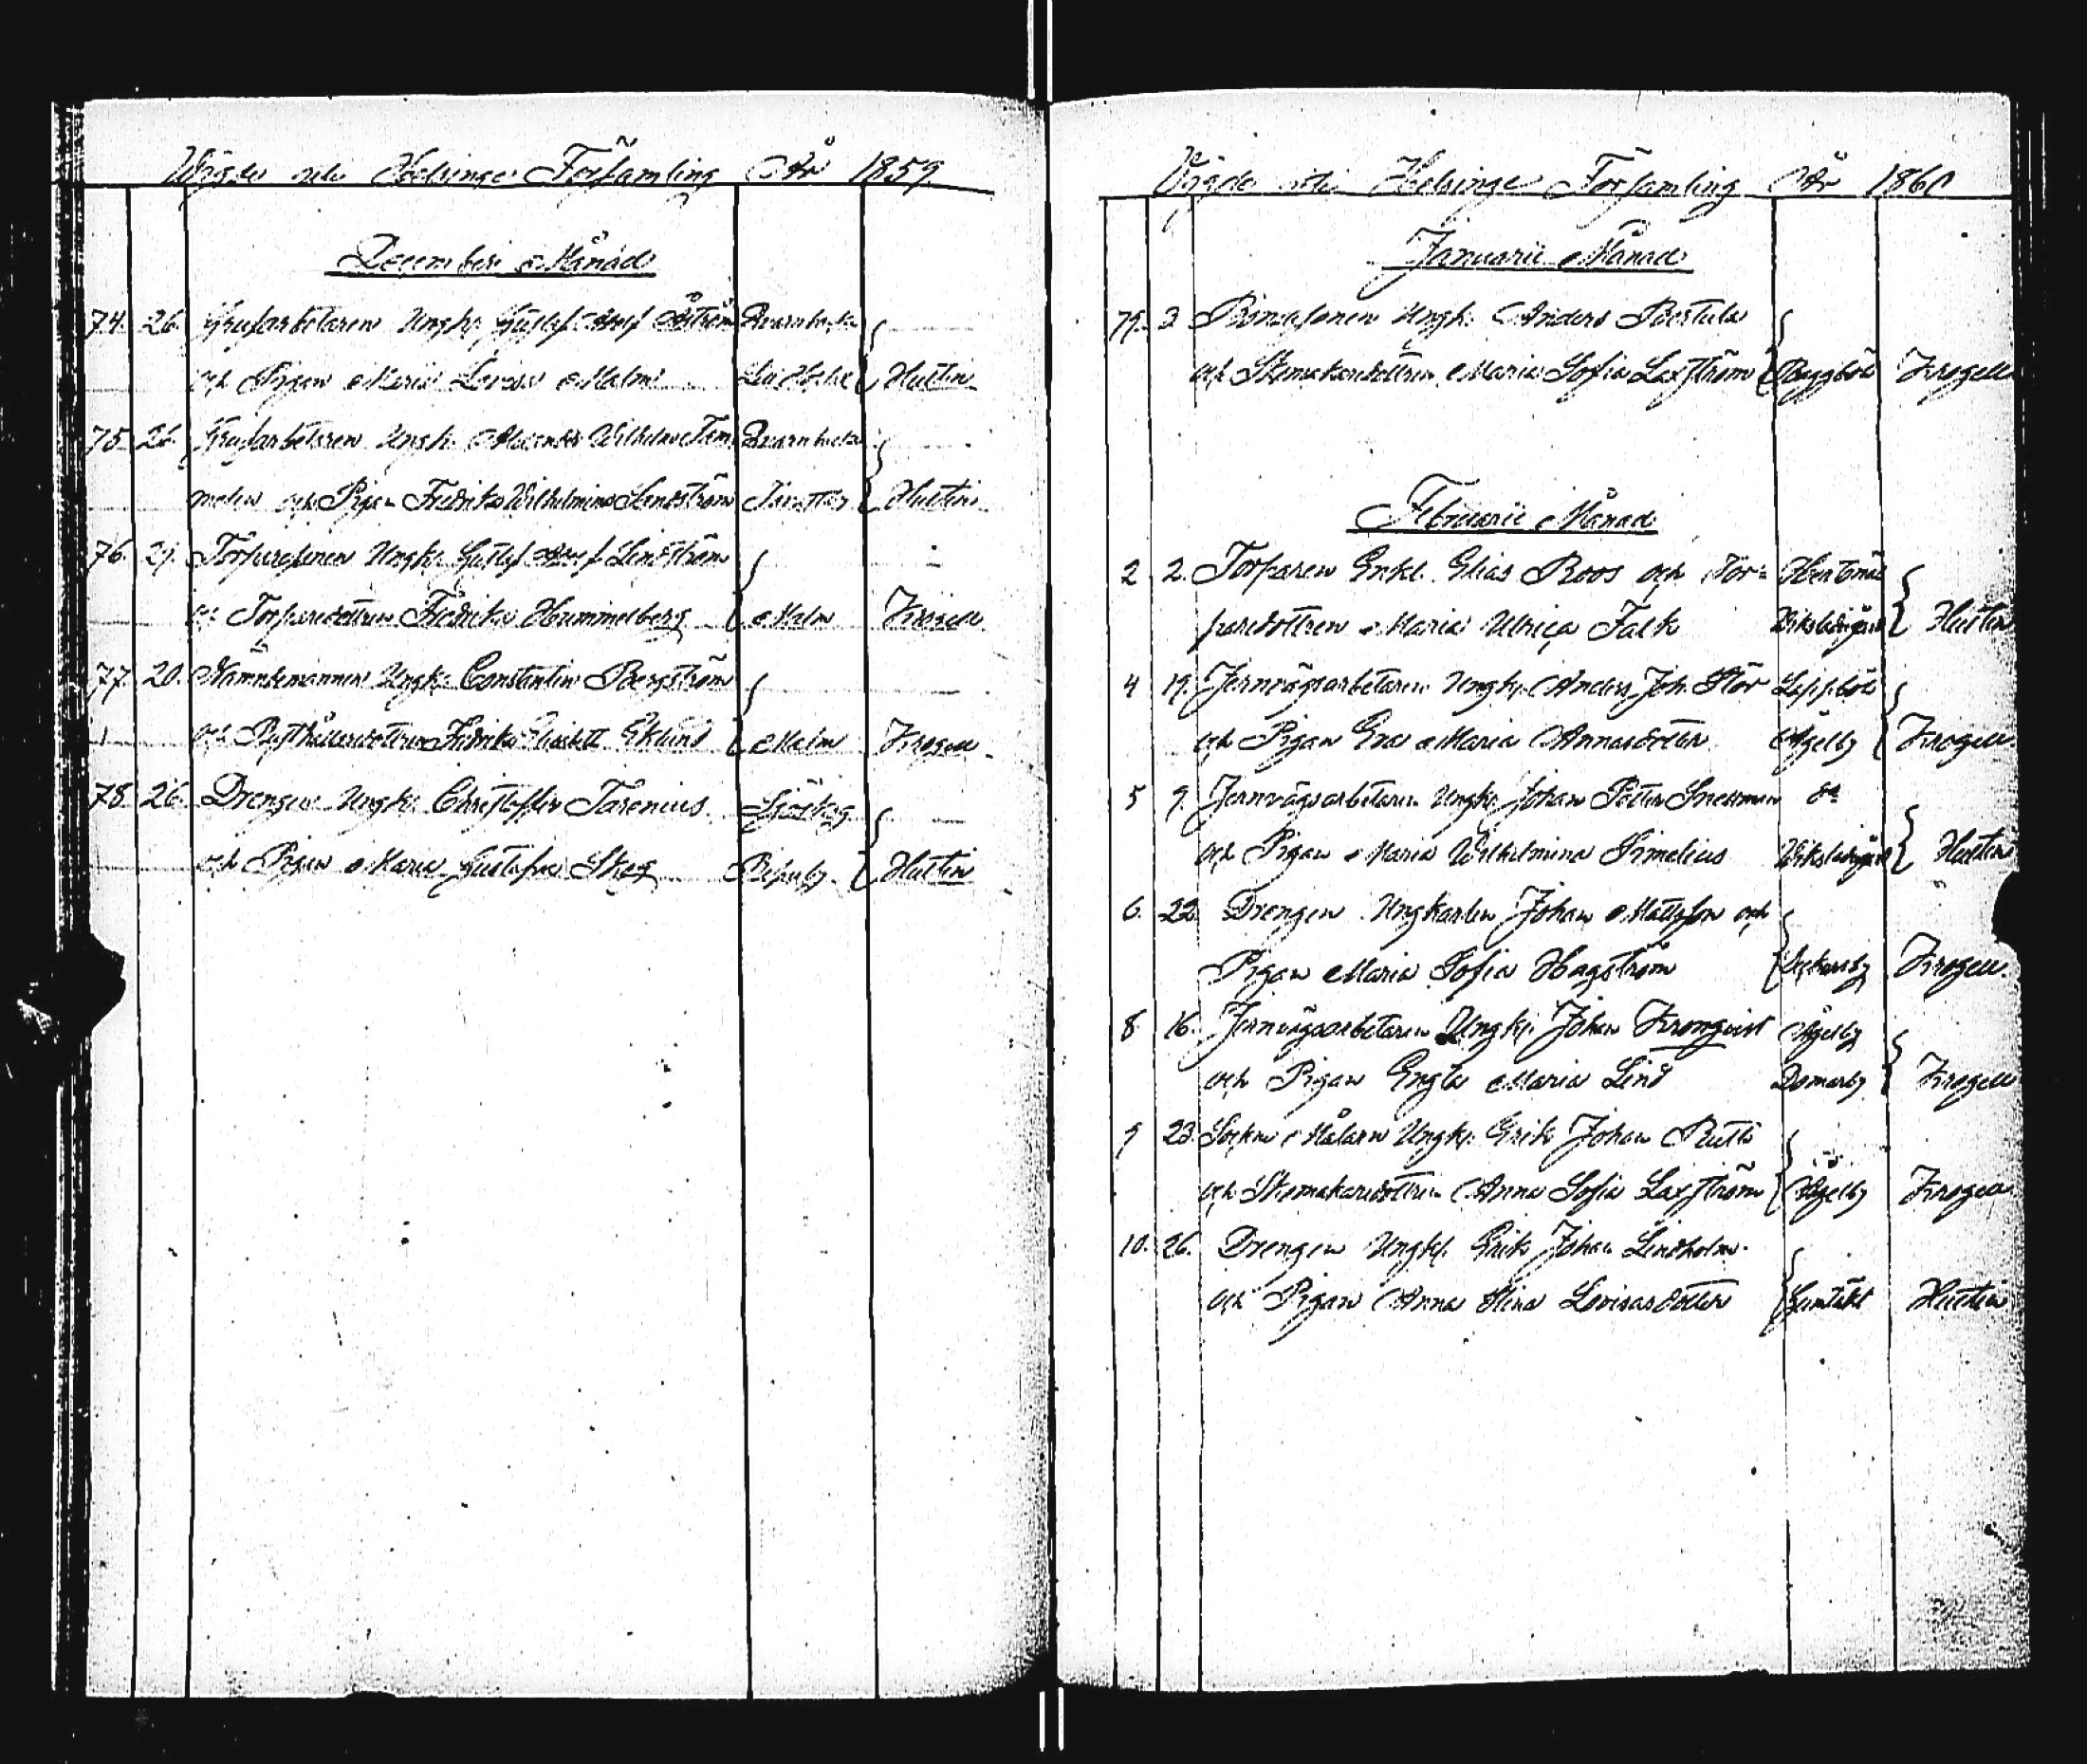 Wigde uti Helsinge Församling År 1859.
December Månad
74. 26. Grufarbetaren Ungk. Gustaf Adolf Åström Qvarnbacka
och Pigan Maria Lovisa Malm Hultin
75. 26. Grufarbetaren Ungk. Alexander Wilhelm Tam Qvarnbacka
melin och Pigan Fredrika Wilhelmina Lindström Hultin
76. 27. Torparesonen Ungk. Gustaf Adolf Lindström
och Torparedottren Fredrika Hummelberg Malm Krogell
77. 20. Nämndemannen Ungk. Constantin Bergström
och Rusthållaredottren Fredrika Elisabett Eklund Malm Krogell
78. 26. Drengen Ungk. Christoffer Tarenius Sjöskog
och Pigan Maria Gustafva Skog Ripuby Hultin
Vigde uti Helsinge Församling År 1860
Januarii Månad
79. 3. Bondesonen Ungk. Anders Bertula
och Skomakaredottren Maria Sofia Laxström Baggböle Krogell
Februarii Månad
2 2. Torparen Enkl. Elias Roos och Tor= Hertonäs
paredottren Maria Ulrica Falk Viksbådegård Hultin
4 19. Jernvägsarbetaren Ungk. Anders Joh. Flör Lappböle
och Pigan Eva Maria Annasdotter Ågelby Krogell
5 9. Jernvägsarbetaren Ungk. Johan Petter Snellman do
och Pigan Maria Wilhelmina Simelius Hultin
6. 22. Drengen Ungkarlen Johan Mattsson och
Pigan Maria Sofia Hagström Dickursby Krogell.
8 16. Jernvägsarbetaren Ungk. Johan Kronqvist Ågelby
och Pigan Engla Maria Lind Domarby Krogell
9 23. Sockne Målarn Ungk. Erik Johan Rutti
och Skomakaredottren Anna Sofia Laxström Ågelby Krogell
10. 26. Drengen Ungk. Erik Johan Lindholm
och Pigan Anna Stina Lovisasdotter Gumtäkt Hultin